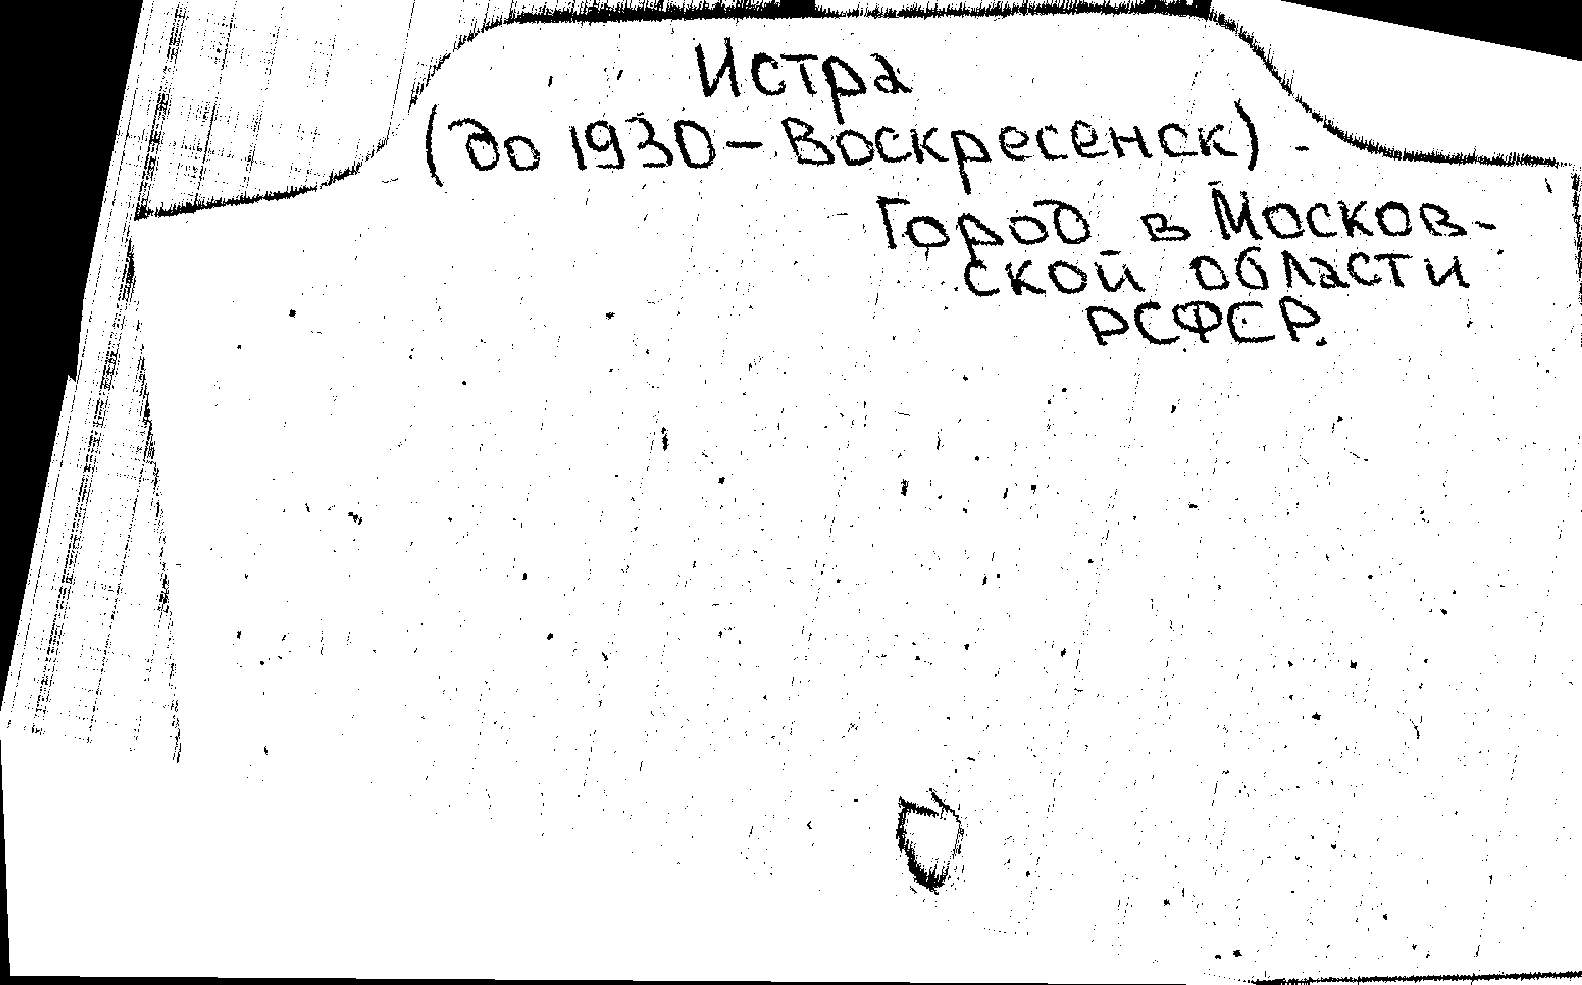 Истра
(до 1930 - Воскресенск) -
Город в Москов-
ской области
РСФСР.